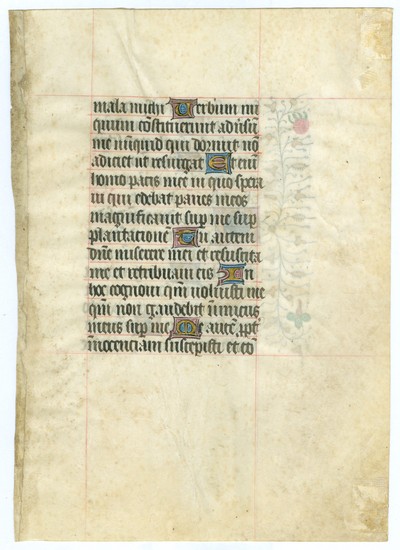 mala michi Verbum ini
quum constituerunt adversū
me nunquid qui dormit nō
adiciet ut resurgat Et eni
homo pacis mee in quo spera
ui qui edebat panes meos
magnificauit sup me sup
plantacionē Tu autem
dn̄e miserere mei et resuscita
me et retribuam eis In
hoc cognoui qm̄ voluisti me
qm̄ non gaudebit inimicus
meus sup me Me autē ꝓpt
innocenciam suscepisti et cō